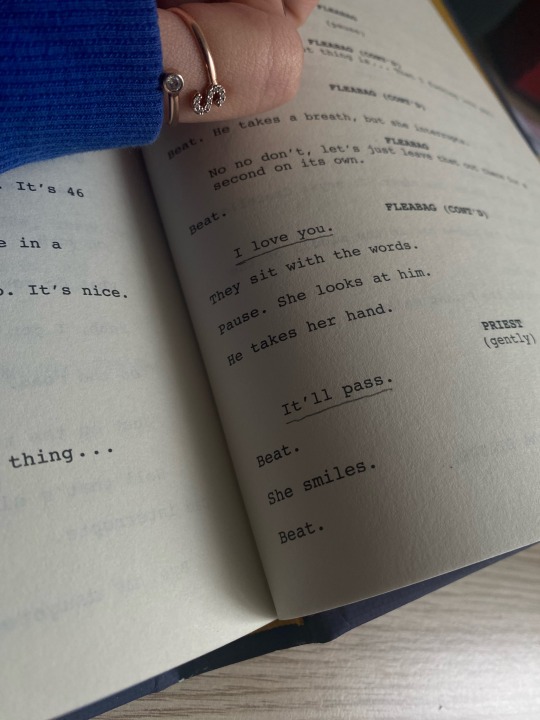 . It's 46
e in a
o. It's nice.
thing...
FLEABAG
(pause)
FLEABAG (CONT'D)
t thing is...
FLEABAG (CONT'D)
Beat. He takes a breath, but she interrupts.
FLEABAG
No no don't, let's just leave that out there for a
second on its own.
Beat.
FLEABAG (CONT'D)
I love you.
They sit with the words.
Pause. She looks at him.
He takes her hand.
PRIEST
(gently)
It'll pass.
Beat.
She smiles.
Beat.